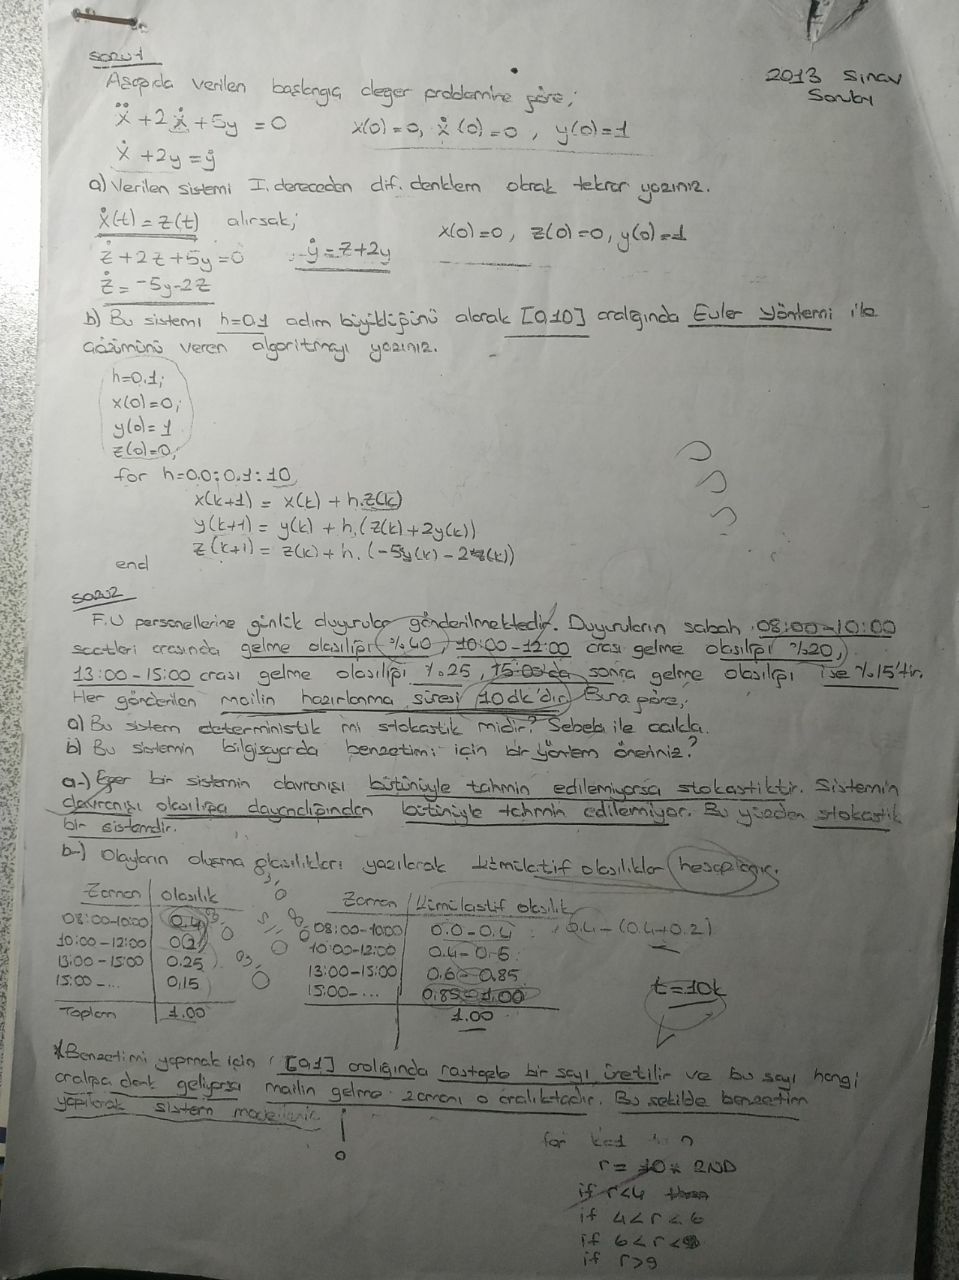 soru 1
2013 Sınav
Soruları
Aşağıda verilen başlangıç değer problemine göre;
ẍ + 2ẋ + 5y = 0   x(0)=0, ẋ(0)=0, y(0)=1
ẋ + 2y = ẏ
a) Verilen sistemi I. dereceden dif. denklem olarak tekrar yazınız.
ẋ(t) = z(t) alırsak;   x(0)=0, z(0)=0, y(0)=1
ż + 2z + 5y = 0   ẏ = z + 2y
ż = -5y - 2z
b) Bu sistemi h=0,1 adım büyüklüğünü alarak [0,10] aralığında Euler Yöntemi ile
çözümünü veren algoritmayı yazınız.
h=0.1;
x(0)=0;
y(0)=1
z(0)=0;
for h=0.0:0.1:10
x(k+1) = x(k) + h.z(k)
y(k+1) = y(k) + h.(z(k)+2y(k))
z(k+1) = z(k) + h.(-5y(k) - 2z(k))
end
soru 2
F.Ü personellerine günlük duyurular gönderilmektedir. Duyuruların sabah 08:00-10:00
saatleri arasında gelme olasılığı %40, 10:00-12:00 arası gelme olasılığı %20,
13:00-15:00 arası gelme olasılığı %25, 15:00'da sonra gelme olasılığı ise %15'tir.
Her gönderilen mailin hazırlanma süresi 10dk'dır. Buna göre;
a) Bu sistem deterministik mi stokastik midir? Sebebi ile açıkla.
b) Bu sistemin bilgisayarda benzetimi için bir yöntem öneriniz?
a-) Eğer bir sistemin davranışı bütünüyle tahmin edilemiyorsa stokastiktir. Sistemin
davranışı olasılığa dayandığından bütünüyle tahmin edilemiyor. Bu yüzden stokastik
bir sistemdir.
b-) Olayların oluşma olasılıkları yazılarak kümülatif olasılıklar hesaplanır.
Zaman olasılık   Zaman Kümilastif olasılık
08:00-10:00 0.4   08:00-10:00 0.0-0.4   0.4-(0.4+0.2)
10:00-12:00 0.2   10:00-12:00 0.4-0.6
13:00-15:00 0.25   13:00-15:00 0.6-0.85
15:00-... 0,15   15:00-... 0.85-1.00   t=10k
Toplam 1.00   1.00
*Benzetimi yapmak için [0,1] aralığında rastgele bir sayı üretilir ve bu sayı hangi
aralığa denk geliyorsa mailin gelme zamanı o aralıktadır. Bu şekilde benzetim
yapılarak sistem modellenir!
for k=1 : n
r = 10 * RND
if r<4
if 4<r<6
if 6<r<9
if r>9